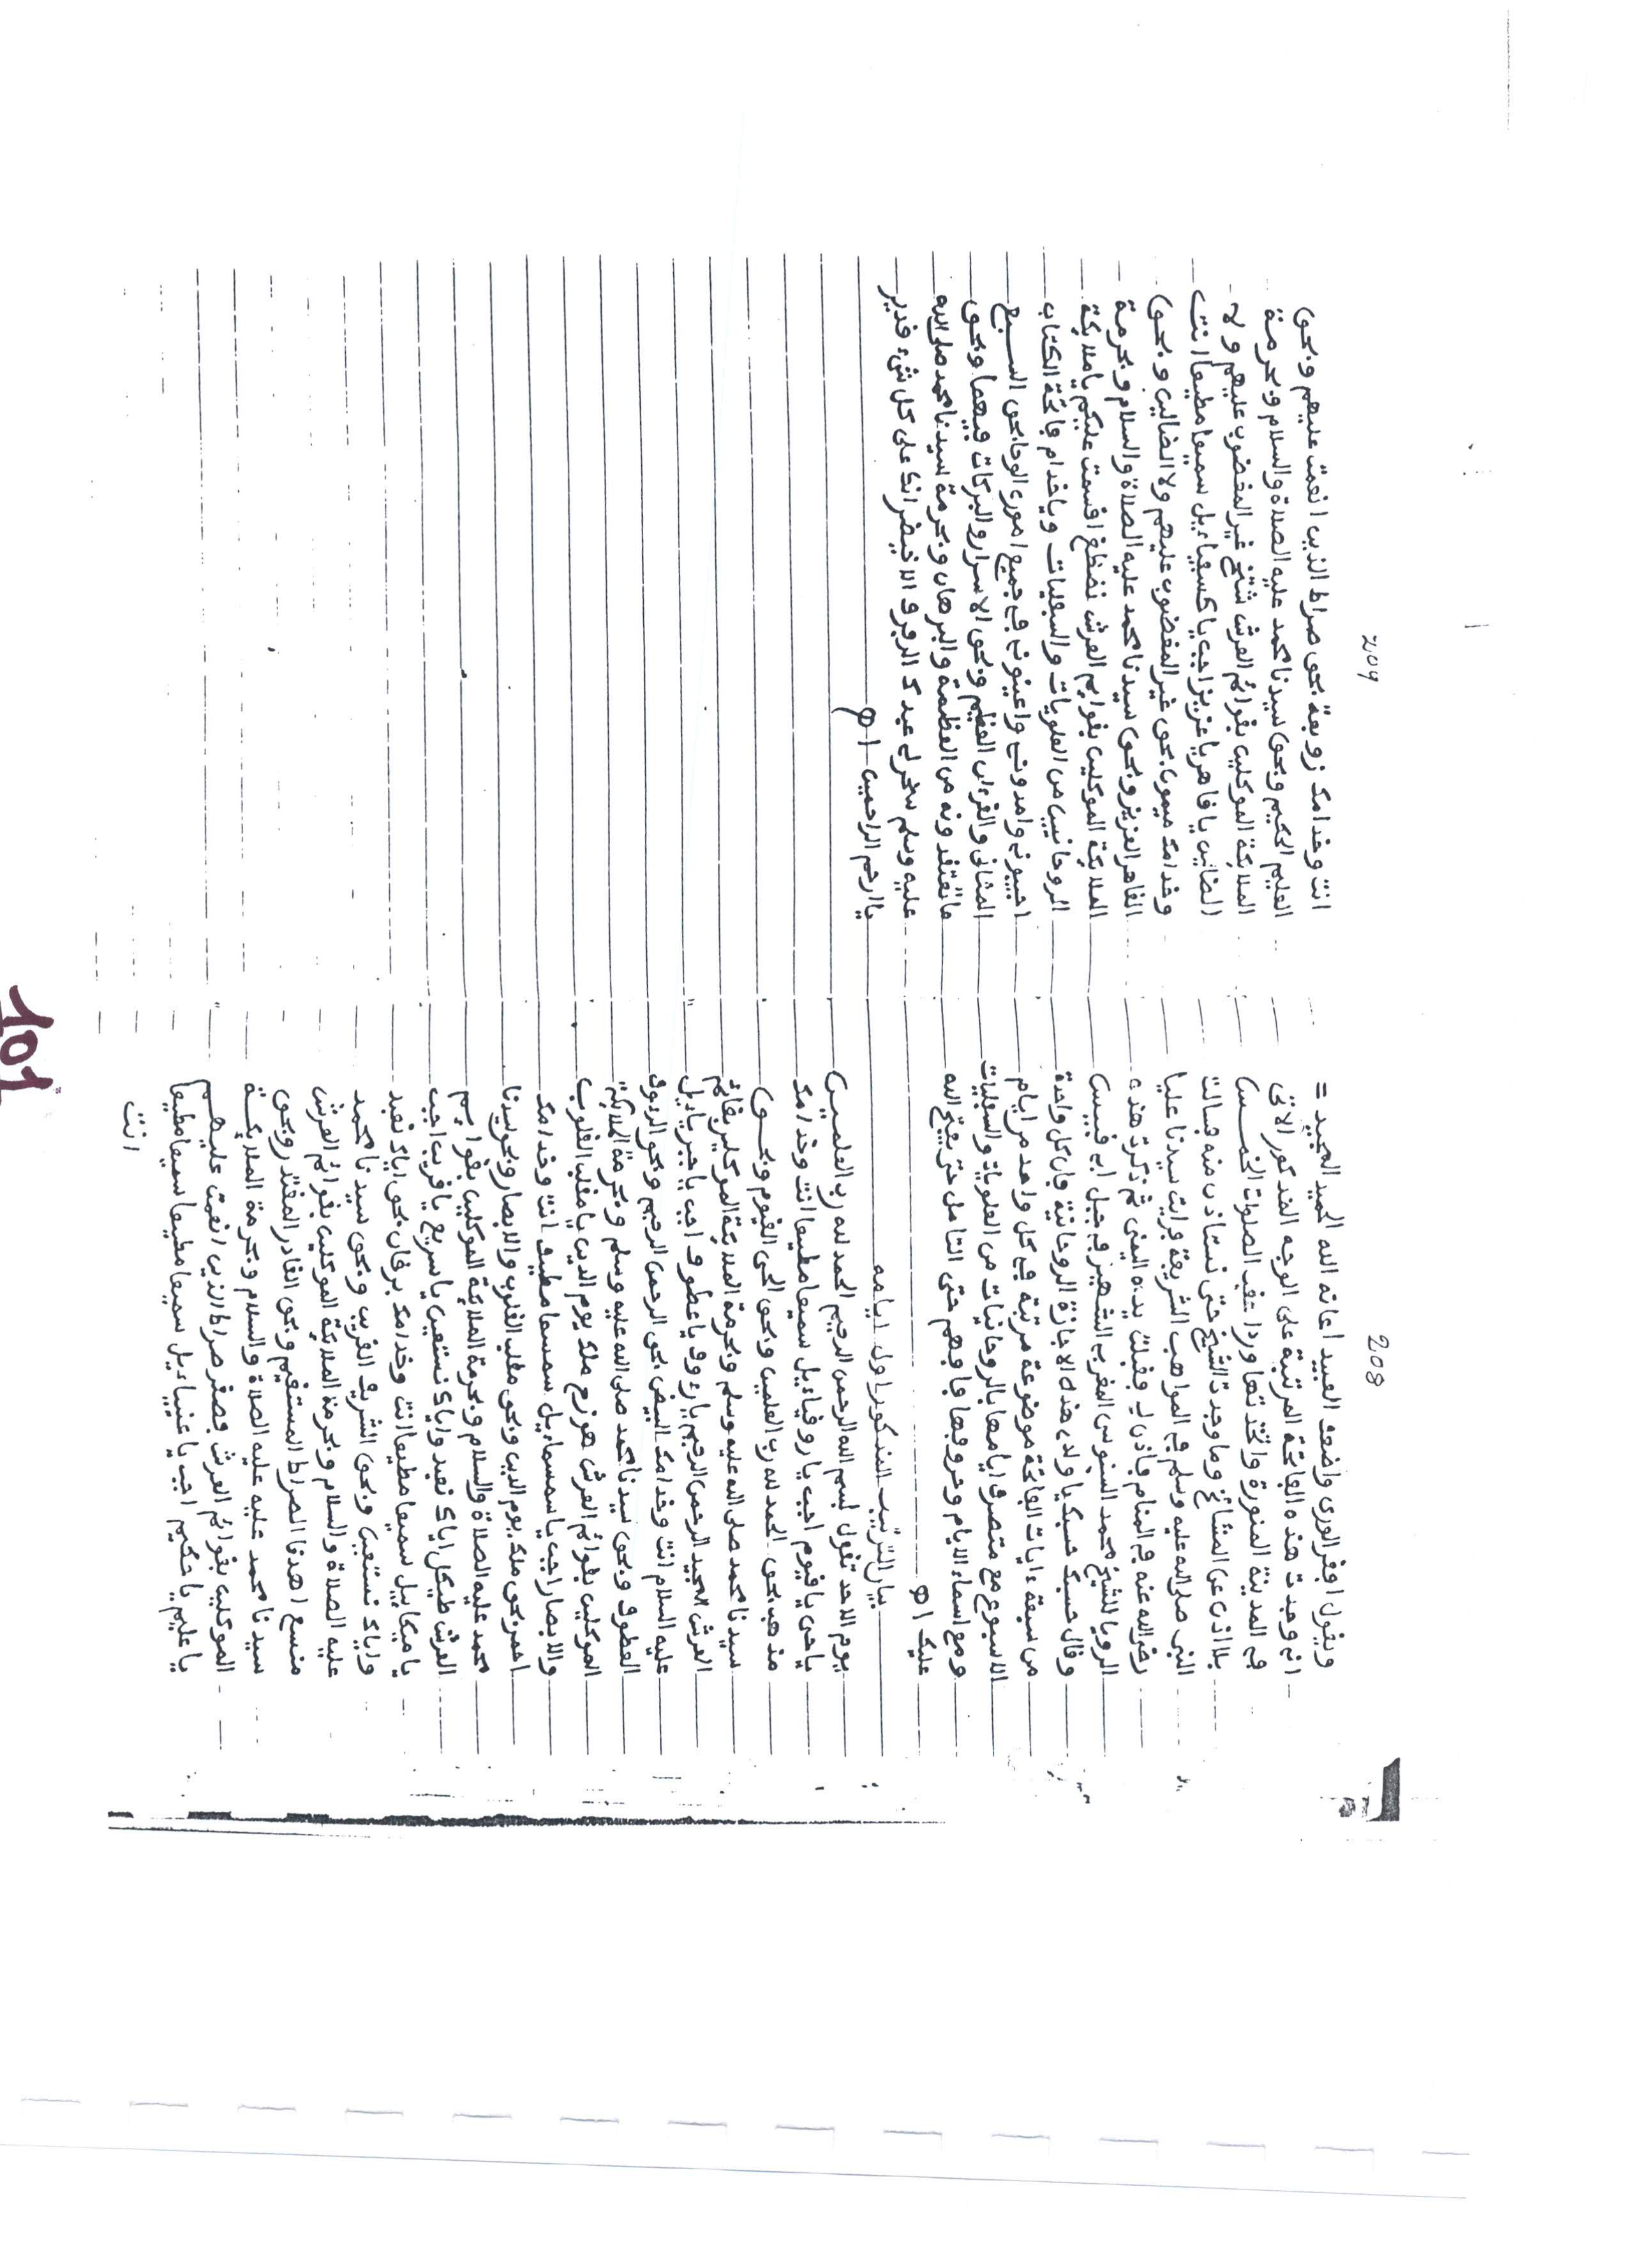 208
ويقول افقر الورى واضعف العبيد اعانه الله الحميد المجيد =
انى وجدت هذه الفاتحة المرتبة على الوجه المذكور الاتى
فى المدينة المنورة واتخذتها وردا عقب الصلوات الخمس
بلا اذن عن المشائخ وما وجدت الشيخ حتى نستاذن منه فسالت
النبى صلى الله عليه وسلم فى المواهب الشريفة فرايت سيدنا عليا
رضى الله عنه فى المنام فاذن لى فقبلت يده اليمنى ثم ذكرت هذه
الرويا للشيخ محمد السنوسى المغربى الشهير فى جبل ابى قبيس
وقال حسبك حسبك يا ولدى هذه الاجازة الروحانية فان كل واحدة
من سبعة ءايات الفاتحة موضوعة مرتبة فى كل واحد من ايام
الاسبوع مع متصرف ايامها بالروحانيات من العلويات والسفليات
ومع اسماء الايام وحروفها فافهم حتى التامل حتى يفتح الله
عليك اهـ
بيان الترتيب المذكور اول ايامه
يوم الاحد تقول بسم الله الرحمن الرحيم الحمد لله رب العلمين
ياحى ياقيوم اجب ياروقيائيل سميعا مطيعا انت وخدامك
مذهب بحق الحمد لله رب العلمين وبحق الحى القيوم وبحق
سيدنا محمد صلى الله عليه وسلم وبحرمة الملائكة الموكلين بقائم
العرش المجيد الرحمن الرحيم يارءوف ياعطوف اجب ياجبريائيل
عليه السلام انت وخدامك البيض بحق الرحمن الرحيم وبحق الرءوف
العطوف وبحق سيدنا محمد صلى الله عليه وسلم وبحرمة الملائكة
الموكلين بقوائم العرش هوزح ملك يوم الدين يامقلب القلوب
والابصار اجب ياسمسمائيل سمسما مطيعا انت وخدامك
احمر بحق ملك يوم الدين وبحق مقلب القلوب والابصار وبحق سيدنا
محمد عليه الصلاة والسلام وبحرمة الملائكة الموكلين بقوائم
العرش طيكل اياك نعبد واياك نستعين ياسريع ياقريب اجب
ياميكاييل سميعا مطيعا انت وخدامك برقان بحق اياك نعبد
واياك نستعين وبحق الشريف القريب وبحق سيدنا محمد
عليه الصلاة والسلام وبحرمة الملائكة الموكلين بقوائم العرش
منسع اهدنا الصراط المستقيم وبحق القادر المقتدر وبحق
سيدنا محمد عليه الصلاة والسلام وبحرمة الملائكة
الموكلين بقوائم العرش فصقر صراط الذين انعمت عليهم
ياعليم ياحكيم اجب ياعنيائيل سميعا مطيعا سميعا مطيعا
انت
209
انت وخدامك زوبعة بحق صراط الذين انعمت عليهم وبحق
العليم الحكيم وبحق سيدنا محمد عليه الصلاة والسلام وبحرمة
الملائكة الموكلين بقوائم العرش شتثخ غير المغضوب عليهم ولا
الضالين ياقاهر ياعزيز اجب ياكسفيائيل سميعا مطيعا انت
وخدامك ميمون بحق غير المغضوب عليهم ولا الضالين وبحق
القاهر العزيز وبحق سيدنا محمد عليه الصلاة والسلام وبحرمة
الملائكة الموكلين بقوايم العرش نضظغ اقسمت عليكم ياملائكة
الروحانيين من العلويات والسفليات وياخدام فاتحة الكتاب
اجيبونى وامدونى واعينونى فى جميع امورى الوحا بحق السبع
المثانى والقرءان العظيم وبحق الاسرار والبركات فيهما وبحق
ماتعتقدونه من العظمة والبرهان وبحرمة سيدنا محمد صلى الله
عليه وسلم سخر لى عبدك الرفرف والاخيضر انك على كل شىء قدير
ياارحم الراحمين اهـ
101